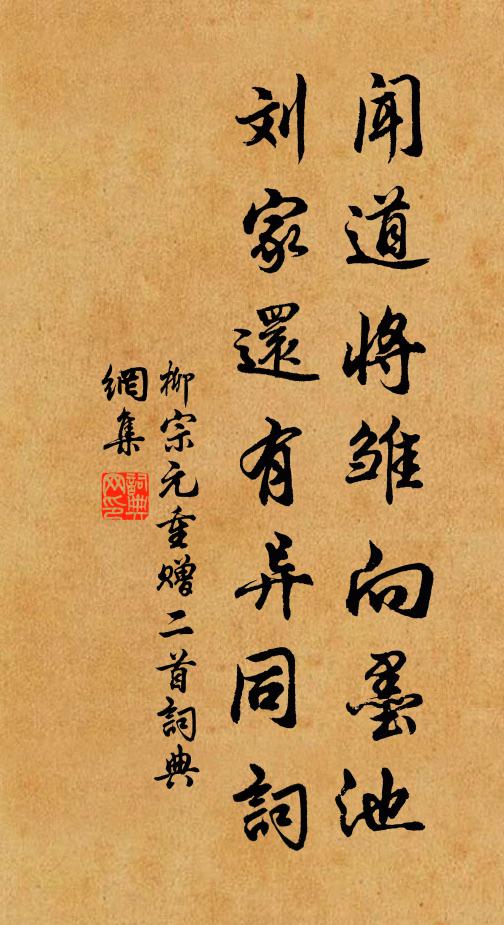 闻道将雏向墨池
刘家還有异同詞
柳宗元重赠二首詞典
網集
詞典
网印